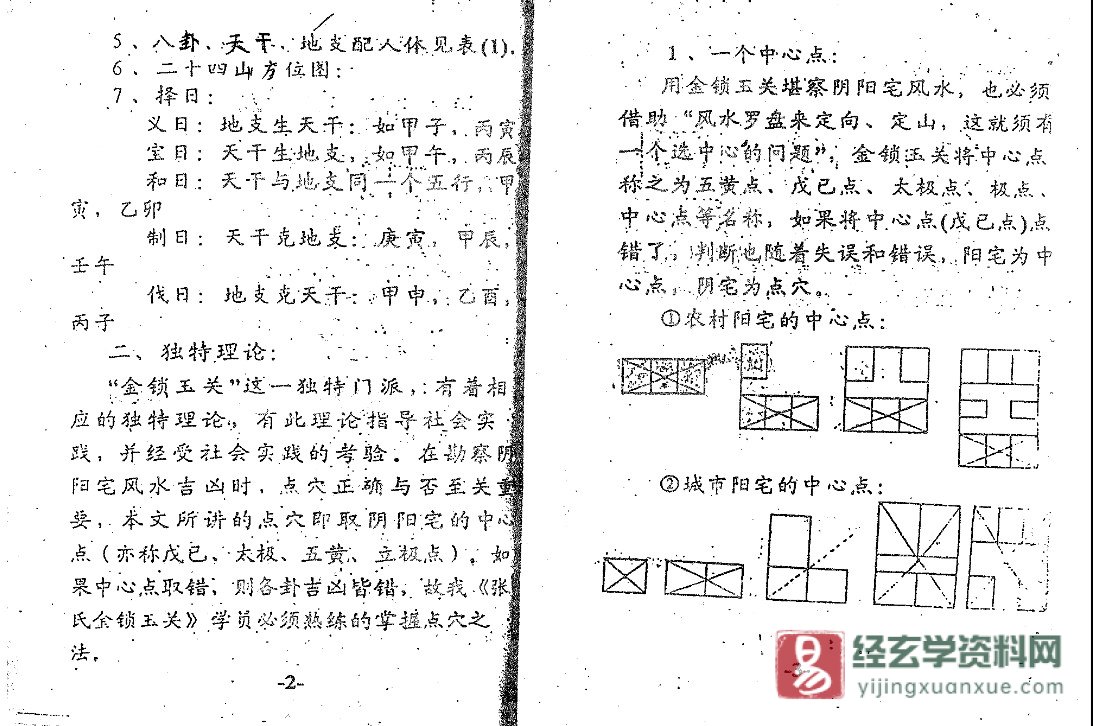 5、八卦、天干、地支配人体见表(1).
6、二十四山方位图:
7、择日:
义日: 地支生天干: 如甲子, 丙寅
宝日: 天干生地支, 如甲午, 丙辰
和日: 天干与地支同一个五行, 甲
寅, 乙卯
制日: 天干克地支: 庚寅, 甲辰,
壬午
伐日: 地支克天干: 甲申, 乙酉,
丙子
二、独特理论:
“金锁玉关”这一独特门派, 有着相
应的独特理论, 有此理论指导社会实
践, 并经受社会实践的考验. 在勘察阴
阳宅风水吉凶时, 点穴正确与否至关重
要, 本文所讲的点穴即取阴阳宅的中心
点 (亦称戊已、太极、五黄、立极点), 如
果中心点取错, 则各卦吉凶皆错, 故我《张
氏金锁玉关》学员必须熟练的掌握点穴之
法.
-2-
1、一个中心点:
用金锁玉关堪察阴阳宅风水, 也必须
借助“风水罗盘来定向、定山, 这就须有
一个选中心的问题”, 金锁玉关将中心点
称之为五黄点、戊已点、太极点、极点、
中心点等名称, 如果将中心点(戊已点)点
错了, 判断也随着失误和错误, 阳宅为中
心点, 阴宅为点穴。
①农村阳宅的中心点:
②城市阳宅的中心点:
-3-
易
经玄学资料网
yijingxuanxue.com